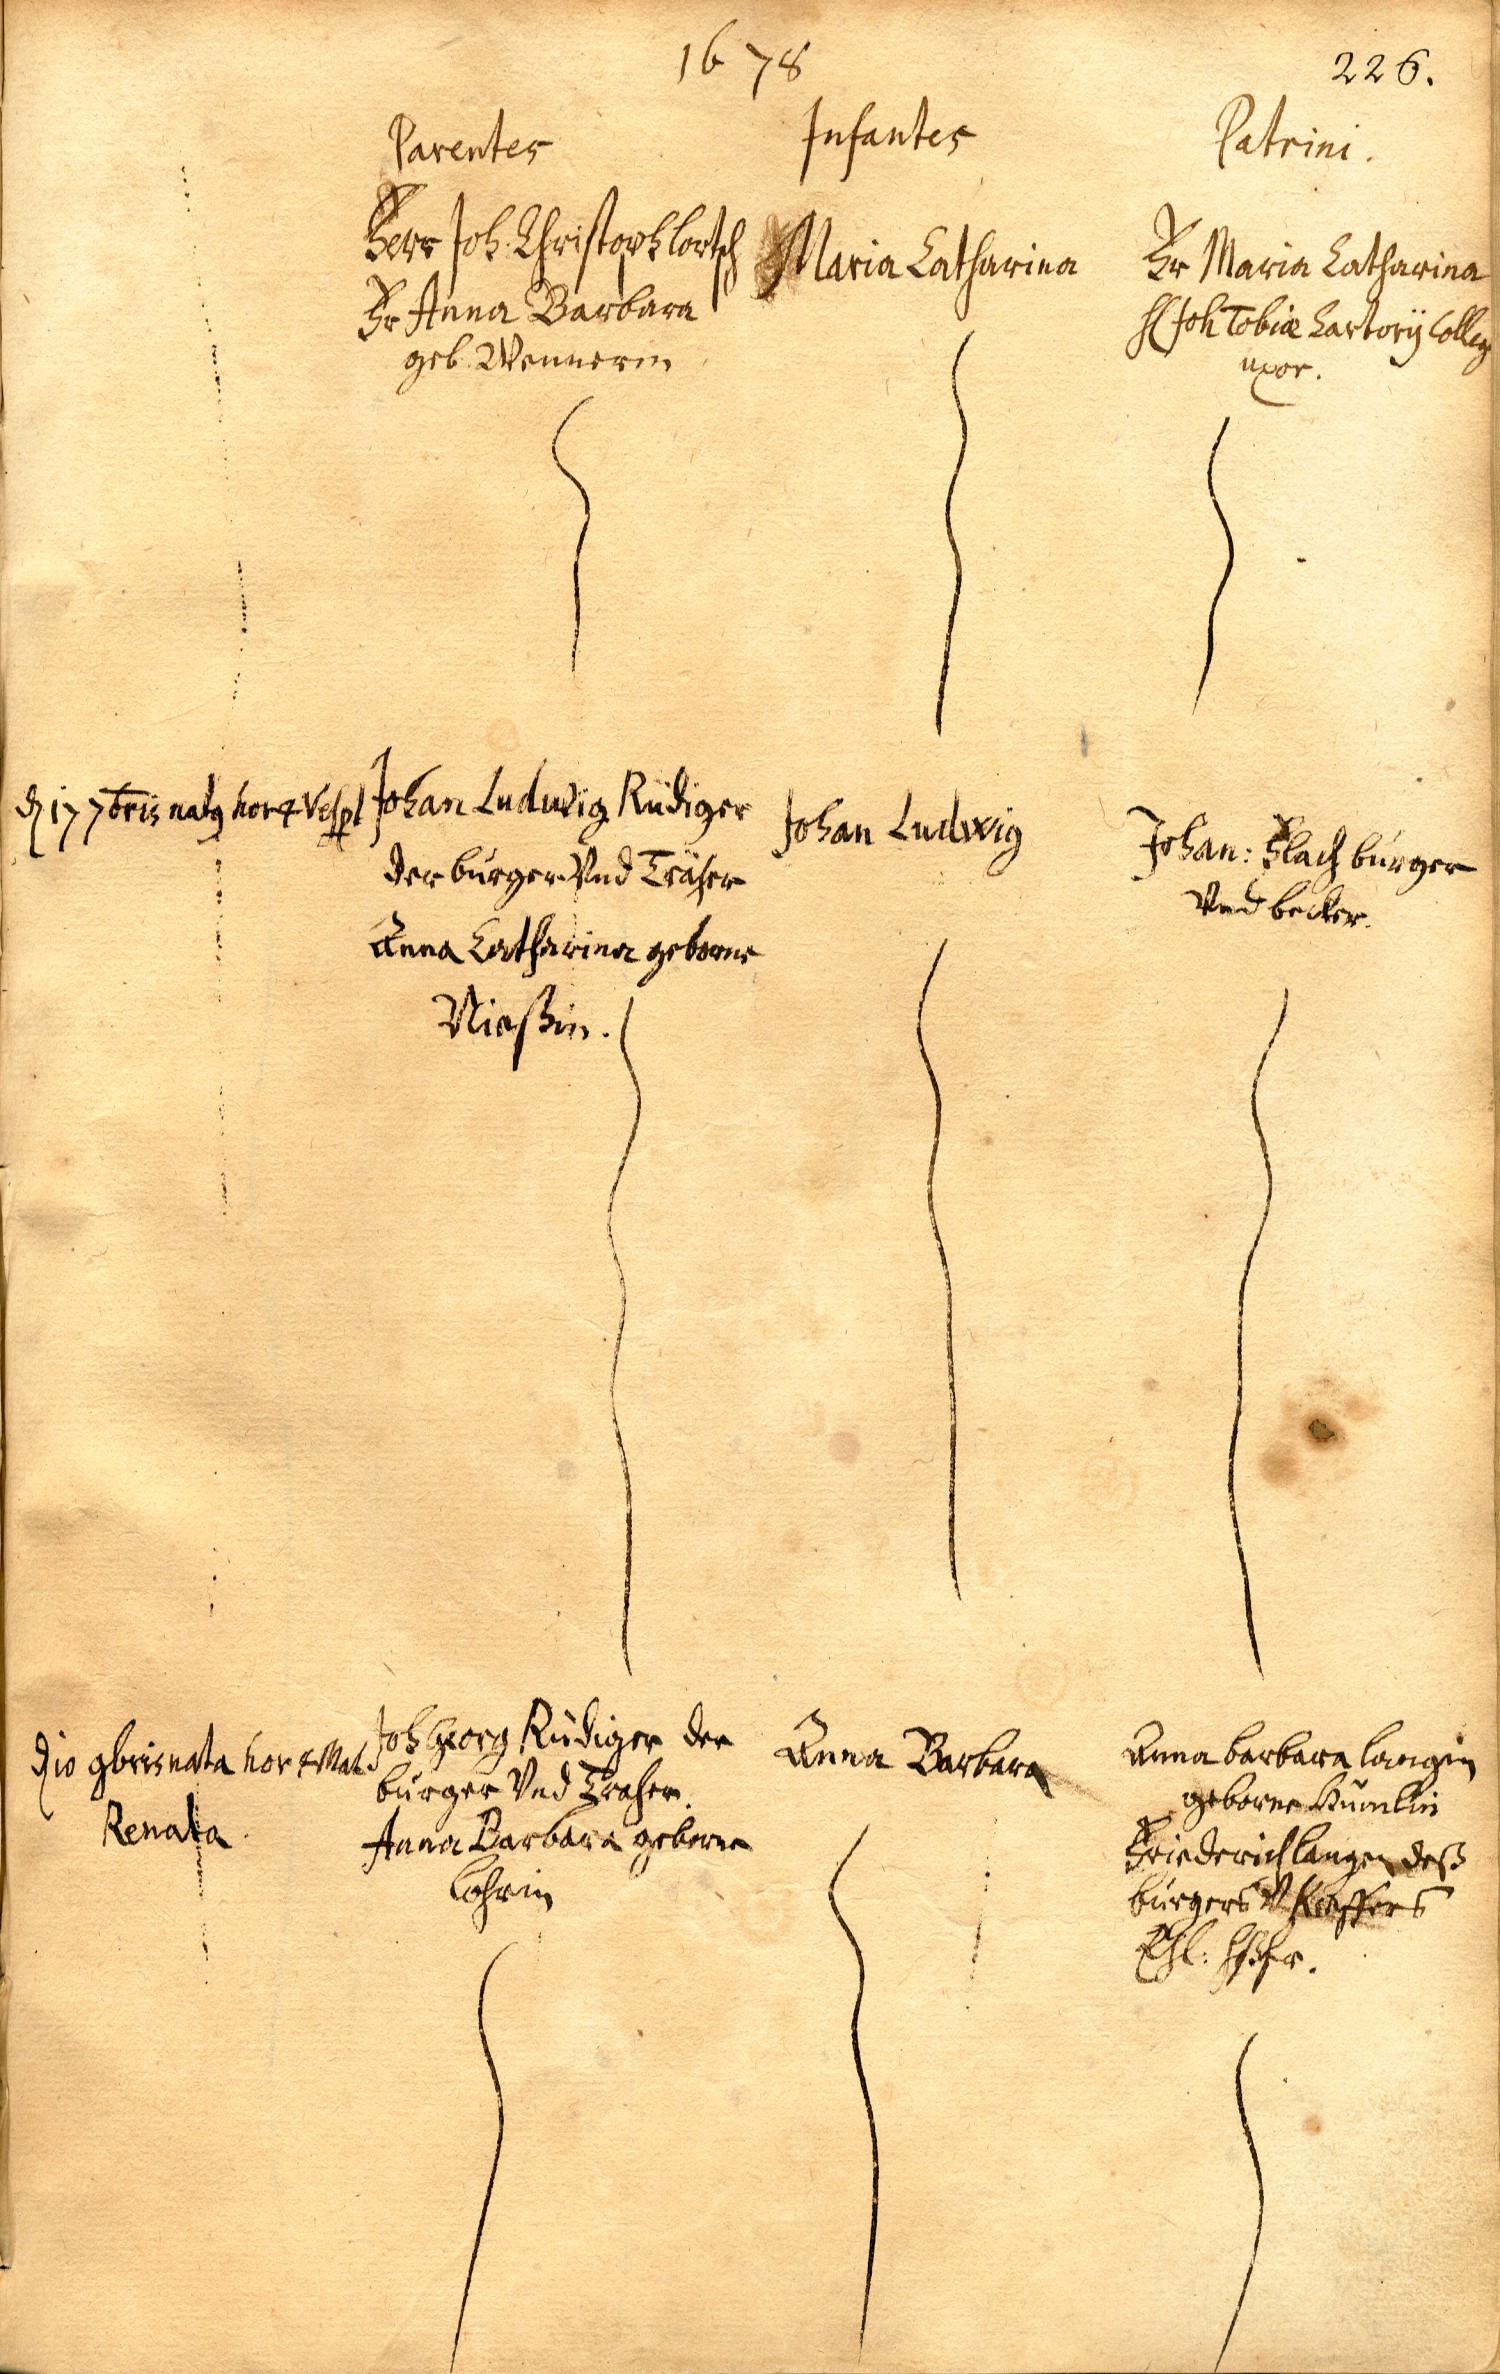 1678
226.
Parentes
Infantes
Patrini.
Herr Joh. Christoph Lortsch
Fr Anna Barbara
geb. Wennerin
Maria Catharina
Fr Maria Catharina
H Joh Tobiæ Sartorij Colleg
uxor.
d 17 7bris natg hor 4 Vesp
Johan Ludwig Rüdiger
der burger Vnd Träher
Anna Catharina geborne
Nießin.
Johan Ludwig
Johan: Flach burger
Vnd becker.
d 10 9bris nata hor 4 Mat
Renata
Joh Georg Rüdiger der
burger Vnd Traher.
Anna Barbara geborne
Lohrin
Anna Barbara
Anna barbara Langin
geborne
Friederich Langen deß
burgers V Kieffers
Ehl. Hßfr.